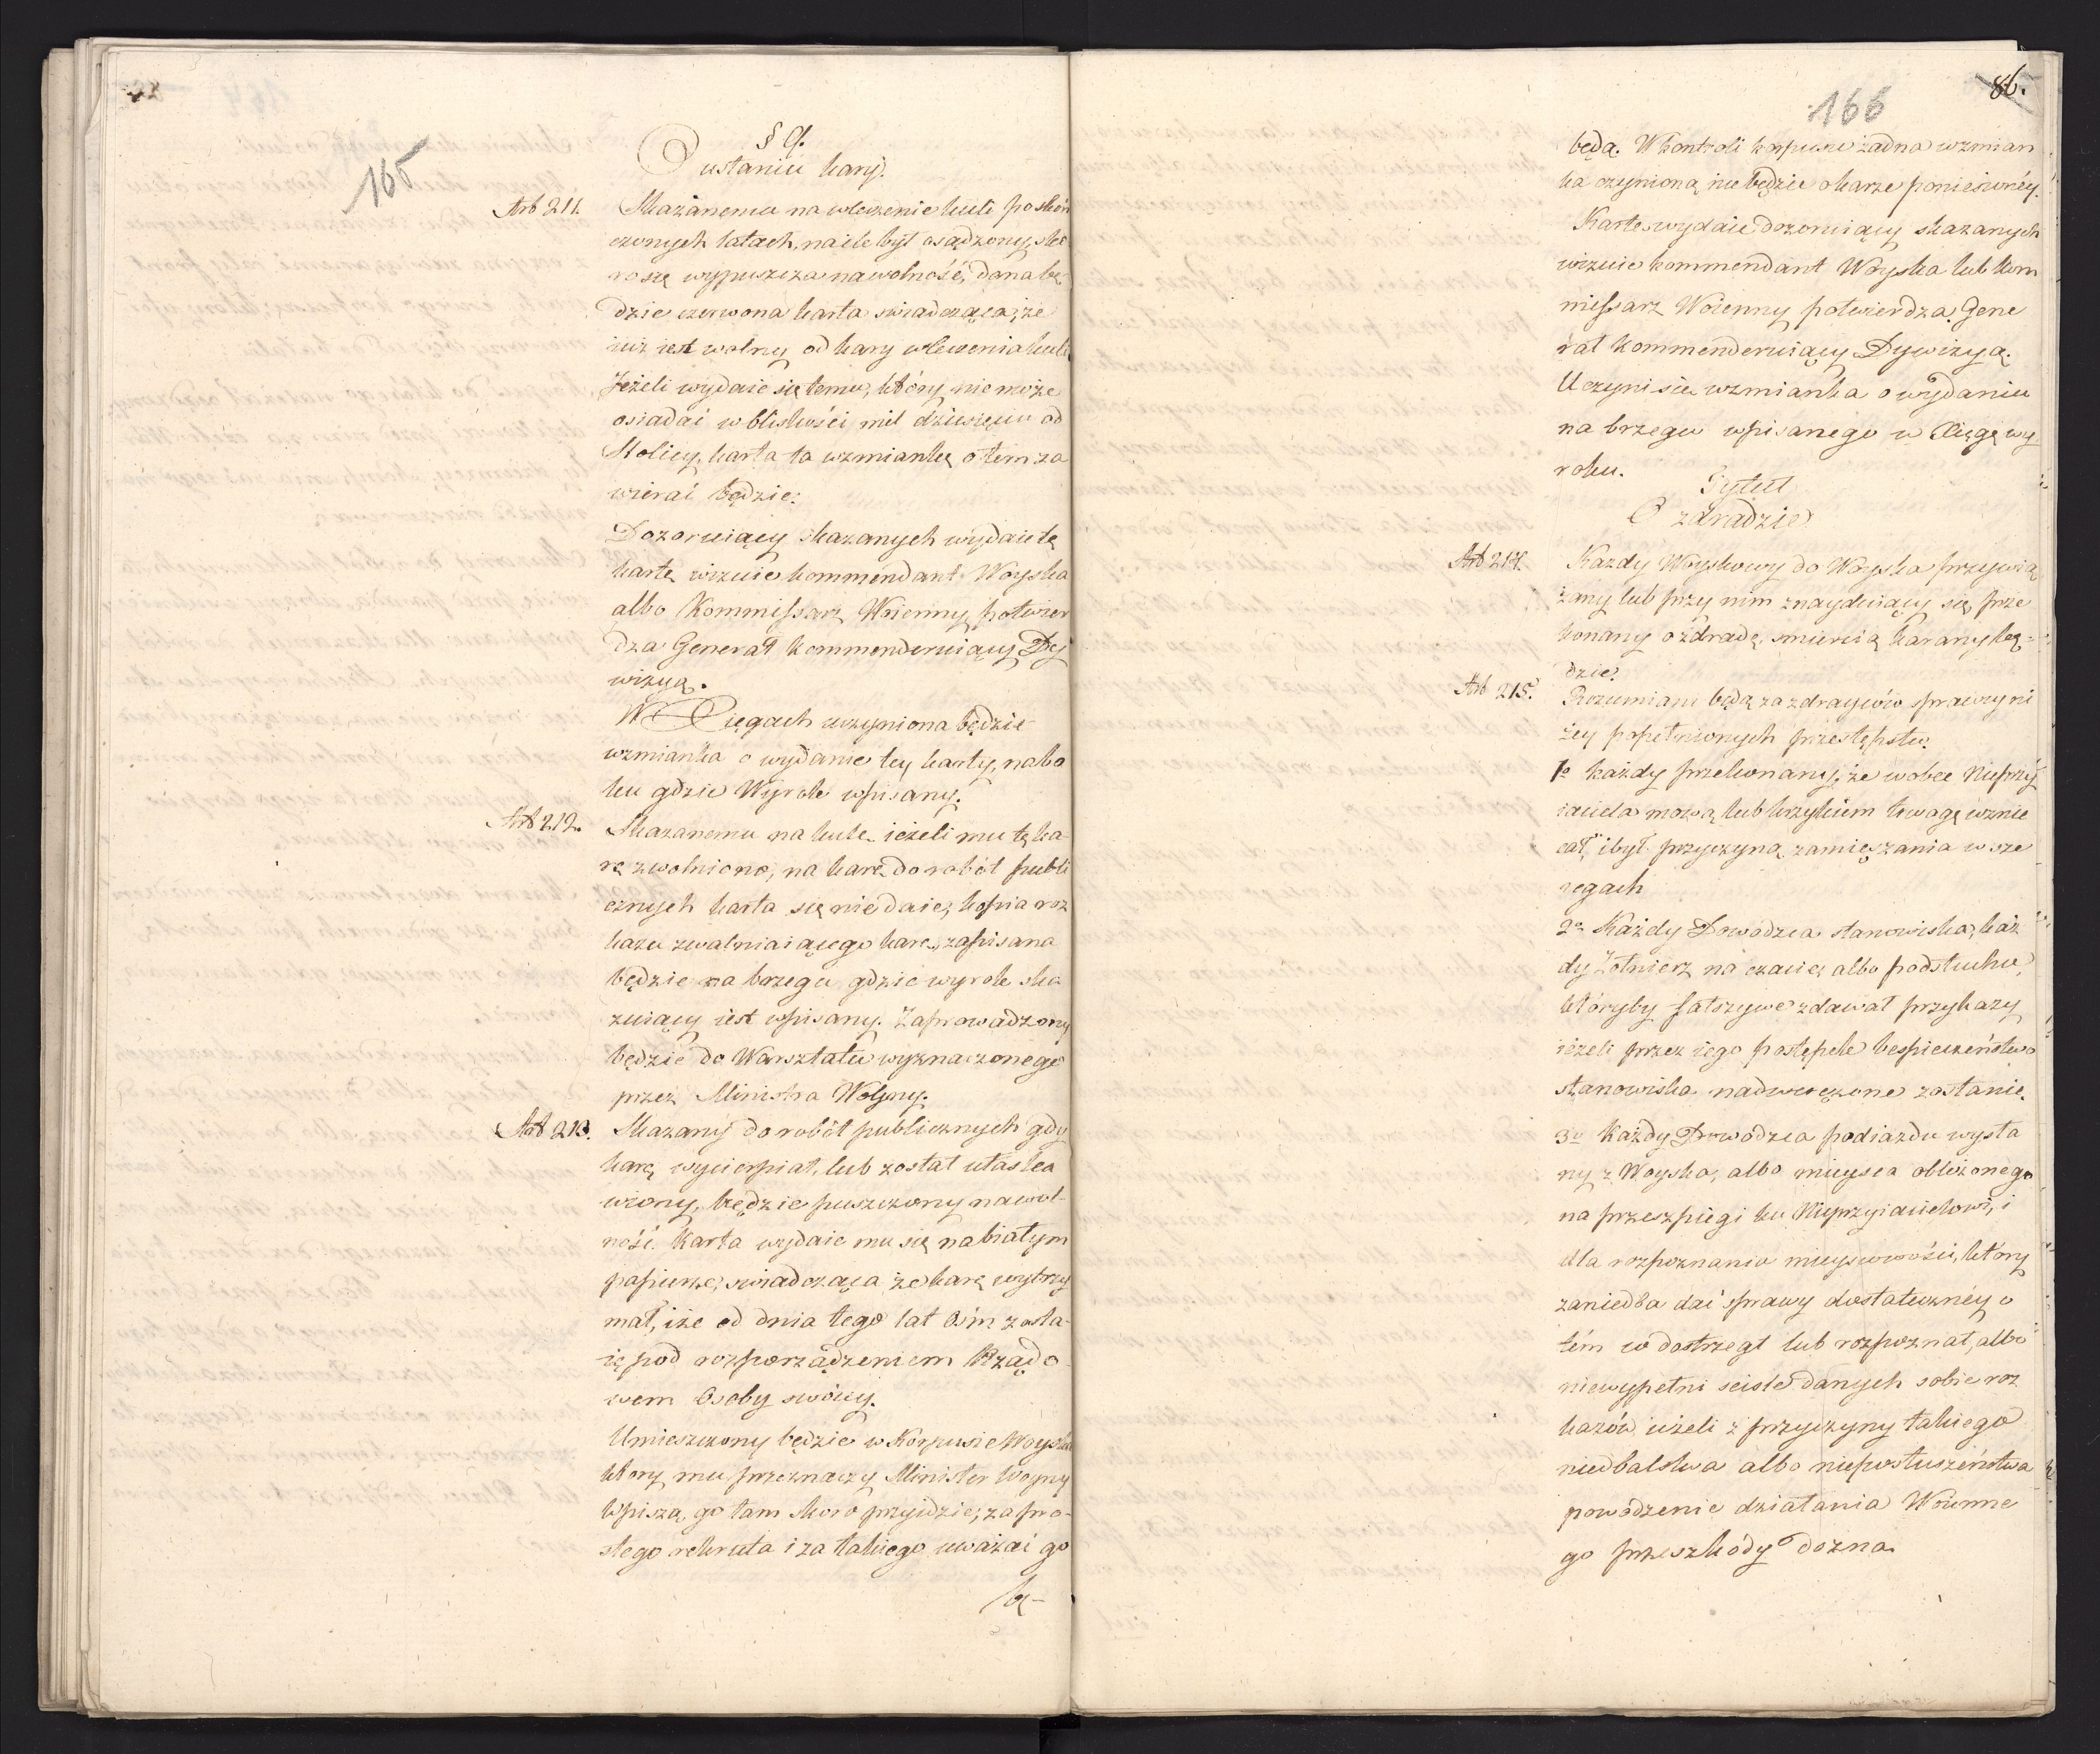 165
§ 9.
O ustaniu kary.
Art 211.
Skazanemu na wleczenie kuli po skoń
czonych latach, na ile był osądzony, sko
ro się wypuszcza na wolność, dana bę
dzie czerwona karta swiadcząca, że
iuż iest wolny od kary wleczenia kuli
Jeżeli wydaie się temu, który nie może
osiadać w bliskości mil dziesięciu od
Stolicy, karta ta wzmiankę o tem za
wierać będzie.
Dozoruiący skazanych wydaie tę
kartę wizuie kommendant Woyska
albo Kommissarz Woienny, potwier
dza Generał kommenderuiący Dy
wizyą.
W Xięgach uczyniona będzie
wzmianka o wydanie tey karty, na bo
ku gdzie Wyrok wpisany.
Art 212.
Skazanemu na kule ieżeli mu tę ka-
rę zwolniono, na karę do robót publi
cznych karta się nie daie, kopia roz
kazu zwalniaiącego karę, zapisana
będzie na brzegu gdzie wyrok ska
zuiący iest wpisany. Zaprowadzony
będzie do Warsztatu wyznaczonego
przez Ministra Woyny.
Art 213.
Skazany do robót publicznych gdy
karę wycierpiał, lub został ułaska
wiony, będzie puszczony na wol-
ność. Karta wydaie mu się na białym
papierze, swiadcząca że karę wytrzy
mał, iże od dnia tego lat Ośm zosta-
ie pod rozporządzeniem Rządo-
wem Osoby swóiey.
Umieszczony będzie w Korpusie Woyska
ktory mu przeznaczy Minister Woyny
Wpiszą go tam skoro przyidzie, za pro-
stego rekruta i za takiego uważać go
bę-
86.
166
będą. W kontroli korpusu żadna wzmian
ka czynioną nie będzie o karze poniesionéy.
Kartę wydaie dozoruiący skazanych
wizuie kommendant Woyska lub Kom
missarz Woienny potwierdza Gene
rał kommenderuiący Dywizyą.
Uczyni się wzmianka o wydaniu
na brzegu wpisanego w Xięgę wy
roku.
Tytuł
O zdradzie
Art 214.
Każdy Woyskowy do Woyska przywią
zany lub przy nim znayduiący się, prze
konany o zdradę, smiercią karany bę-
dzie.
Art 215.
Rozumiani będą za zdrayców sprawcy ni
żey popełnionych przestępstw.
1o każdy przekonany, że wobec Nieprzy
iaciela mową lub krzykiem trwogę wznie
cał, i był przyczyną zamięszania w sze
regach
2o Każdy Dowodzca stanowiska, każ
dy Żołnierz na czacie albo podsłuchu,
któryby fałszywe zdawał przykazy
ieżeli przez iego postępek bespieczeństwo
stanowiska nadwerężone zostanie.
3o Każdy Dowodzca podiazdu wysła
ny z Woyska, albo mieysca oblężonego
na przeszpiegi ku Nieprzyiacielowi, i
dla rozpoznania mieyscowości, który
zaniedba dać sprawy dostateczney o
tém co dostrzegł lub rozpoznał, albo
niewypełni sciśle danych sobie roz
kazów ieżeli z przyczyny takiego
niedbalstwa albo nieposłuszeństwa
powodzenie działania Woienne
go przeszkódy dozna.